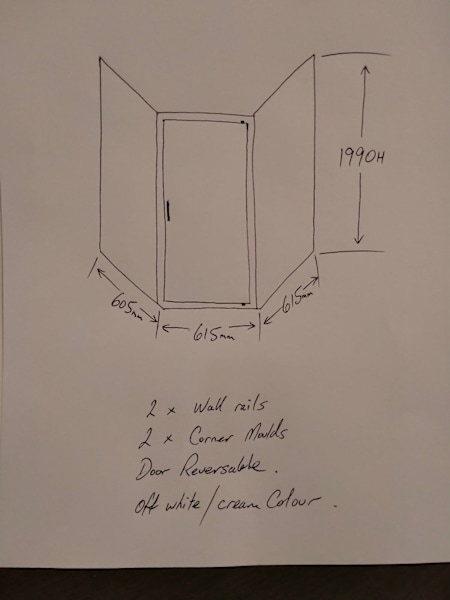 1990H
605mm
615mm
615mm
2 x Wall rails
2 x Corner Moulds
Door Reversable.
Off white/cream Colour.